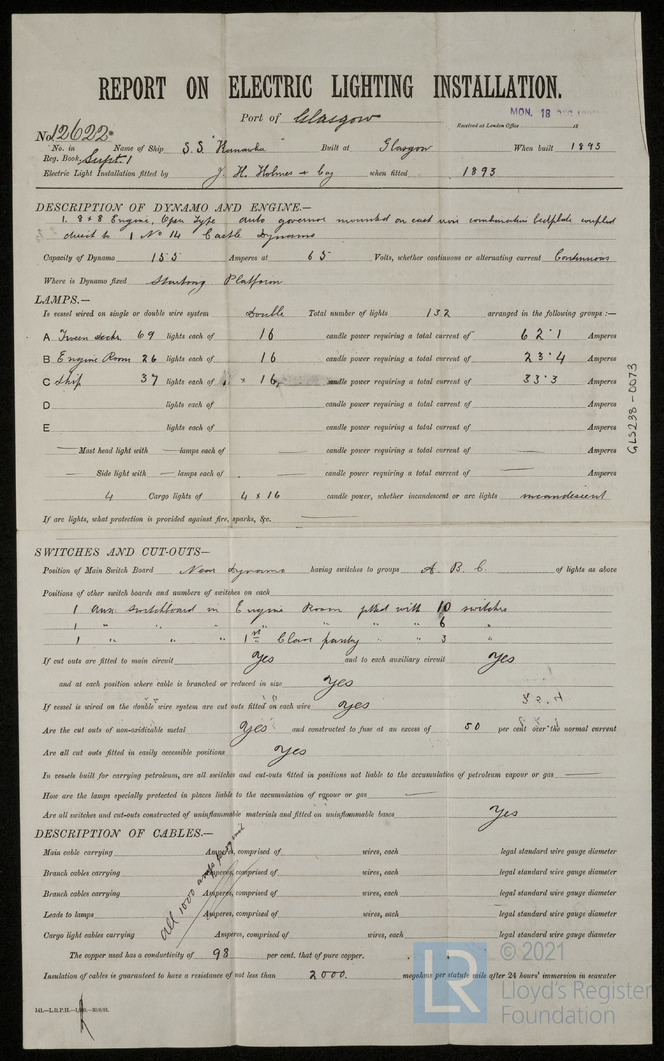 REPORT ON ELECTRIC LIGHTING INSTALLATION.
Port of Glasgow
MON. 18
Received at London Office 18
No 12622
No. in Name of Ship S.S. Built at Glasgow When built 1893
Reg. Book Supt. 1
Electric Light Installation fitted by J. H. Holmes & Coy when fitted 1893
DESCRIPTION OF DYNAMO AND ENGINE.—
1. 8 x 8 Engine, Open Type auto governor mounted on cast iron combination bedplate coupled
direct to 1 No 14 Castle Dynamo
Capacity of Dynamo 155 Amperes at 65 Volts, whether continuous or alternating current Continuous
Where is Dynamo fixed Starting Platform
LAMPS.—
Is vessel wired on single or double wire system Double Total number of lights 132 arranged in the following groups :—
A Tween decks 69 lights each of 16 candle power requiring a total current of 62.1 Amperes
B Engine Room 26 lights each of 16 candle power requiring a total current of 23.4 Amperes
C Ship 37 lights each of 16 candle power requiring a total current of 33.3 Amperes
D lights each of candle power requiring a total current of Amperes
E lights each of candle power requiring a total current of Amperes
— Mast head light with — lamps each of — candle power requiring a total current of — Amperes
— Side light with — lamps each of — candle power requiring a total current of — Amperes
4 Cargo lights of 4 x 16 candle power, whether incandescent or arc lights incandescent
If arc lights, what protection is provided against fire, sparks, &c. —
SWITCHES AND CUT-OUTS—
Position of Main Switch Board Near Dynamo having switches to groups A. B. C. of lights as above
Positions of other switch boards and numbers of switches on each
1 Aux: switchboard in Engine Room fitted with 10 switches
1 " " " " " 6 "
1 " " " 1st Class pantry " " 3 "
If cut outs are fitted to main circuit Yes and to each auxiliary circuit Yes
and at each position where cable is branched or reduced in size Yes
If vessel is wired on the double wire system are cut outs fitted on each wire Yes
Are the cut outs of non-oxidizable metal Yes and constructed to fuse at an excess of 50 per cent over the normal current
Are all cut outs fitted in easily accessible positions Yes
In vessels built for carrying petroleum, are all switches and cut-outs fitted in positions not liable to the accumulation of petroleum vapour or gas —
How are the lamps specially protected in places liable to the accumulation of vapour or gas —
Are all switches and cut-outs constructed of uninflammable materials and fitted on uninflammable bases Yes
DESCRIPTION OF CABLES.—
Main cable carrying Amperes, comprised of wires, each legal standard wire gauge diameter
Branch cables carrying Amperes, comprised of wires, each legal standard wire gauge diameter
Branch cables carrying Amperes, comprised of wires, each legal standard wire gauge diameter
Leads to lamps Amperes, comprised of wires, each legal standard wire gauge diameter
Cargo light cables carrying Amperes, comprised of wires, each legal standard wire gauge diameter
all 1000 amps per sq inch
The copper used has a conductivity of 98 per cent. that of pure copper.
Insulation of cables is guaranteed to have a resistance of not less than 2000. megohms per statute mile after 24 hours' immersion in seawater
GLS238-0073
LR
© 2021
Lloyd's Register
Foundation